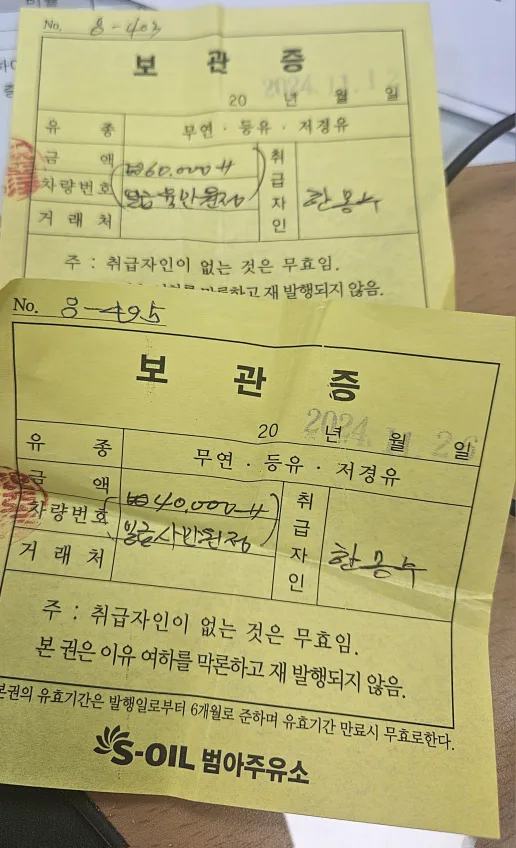 No. 8-403
보 관 증
20 년 월 일
2024.11.12
유 종 무연 · 등유 · 저경유
금 액 ₩60.000
차량번호 일금 육만원정
거 래 처
취급자인 한몽수
주 : 취급자인이 없는 것은 무효임.
막론하고 재 발행되지 않음.
No. 8-495
보 관 증
20 년 월 일
2024.11.26
유 종 무연 · 등유 · 저경유
금 액 ₩40,000
차량번호 일금 사만원정
거 래 처
취급자인 한몽수
주 : 취급자인이 없는 것은 무효임.
본 권은 이유 여하를 막론하고 재 발행되지 않음.
본권의 유효기간은 발행일로부터 6개월로 준하며 유효기간 만료시 무효로한다.
S-OIL 범아주유소